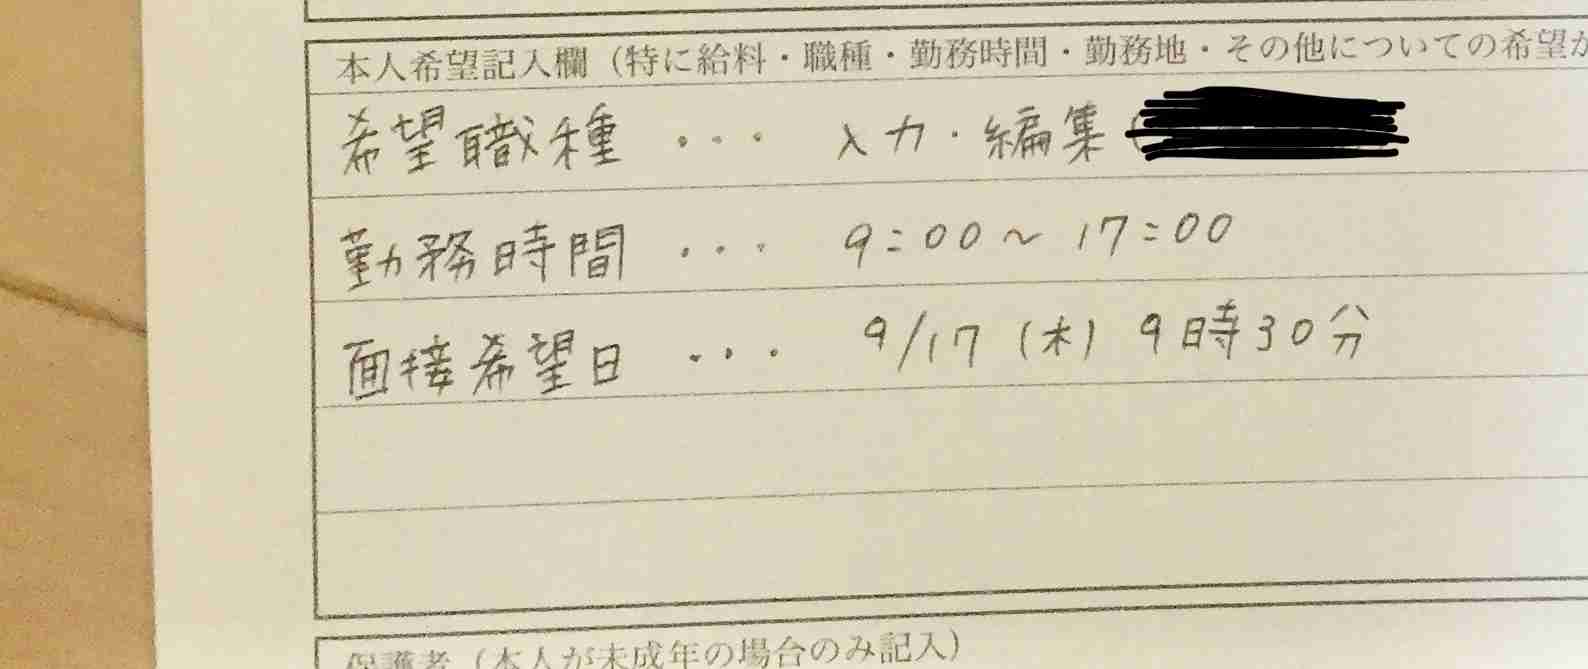 本人希望記入欄（特に給料・職種・勤務時間・勤務地・その他についての希望が
希望職種 ・・・ 入力・編集（
勤務時間 ・・・ 9:00～17:00
面接希望日 ・・・ 9/17（木）9時30分
保護者（本人が未成年の場合のみ記入）